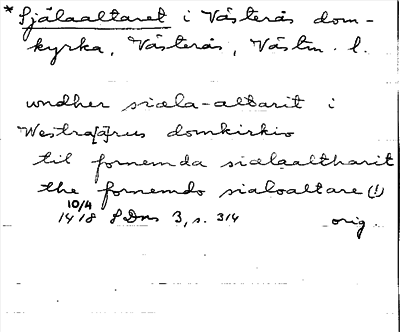 *Själaaltaret i Västerås dom-
kyrka, Västerås, Västm. l.
undher siæla-altarit i
Westra[r]rus domkirkio
til fornemda siælaaltharit
the fornemdo sialoaltare (!)
10/4
1418 SDns 3, s. 314 orig.